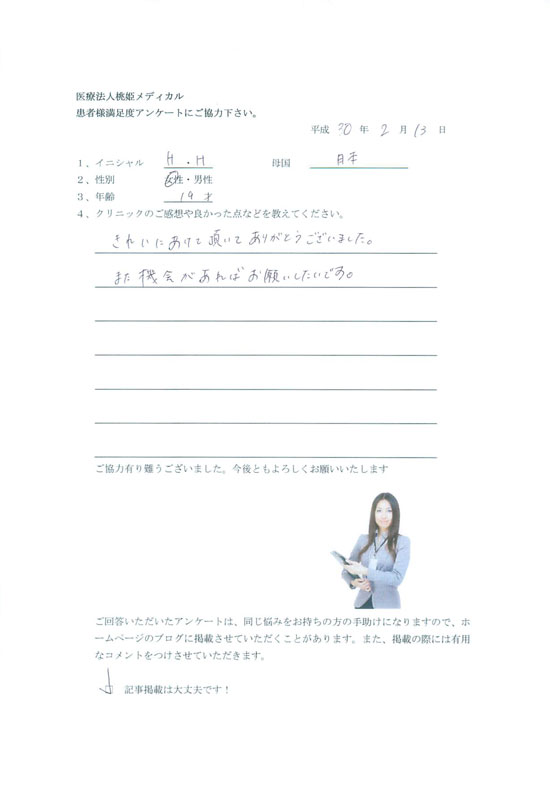 医療法人桃姫メディカル
患者様満足度アンケートにご協力下さい。
平成 30 年 2 月 13 日
1、イニシャル H . H 母国 日本
2、性別 女性・男性
3、年齢 19 才
4、クリニックのご感想や良かった点などを教えてください。
きれいにあけて頂いてありがとうございました。
また機会があればお願いしたいです。
ご協力有り難うございました。今後ともよろしくお願いいたします
ご回答いただいたアンケートは、同じ悩みをお持ちの方の手助けになりますので、ホ
ームページのブログに掲載させていただくことがあります。また、掲載の際には有用
なコメントをつけさせていただきます。
□ 記事掲載は大丈夫です！